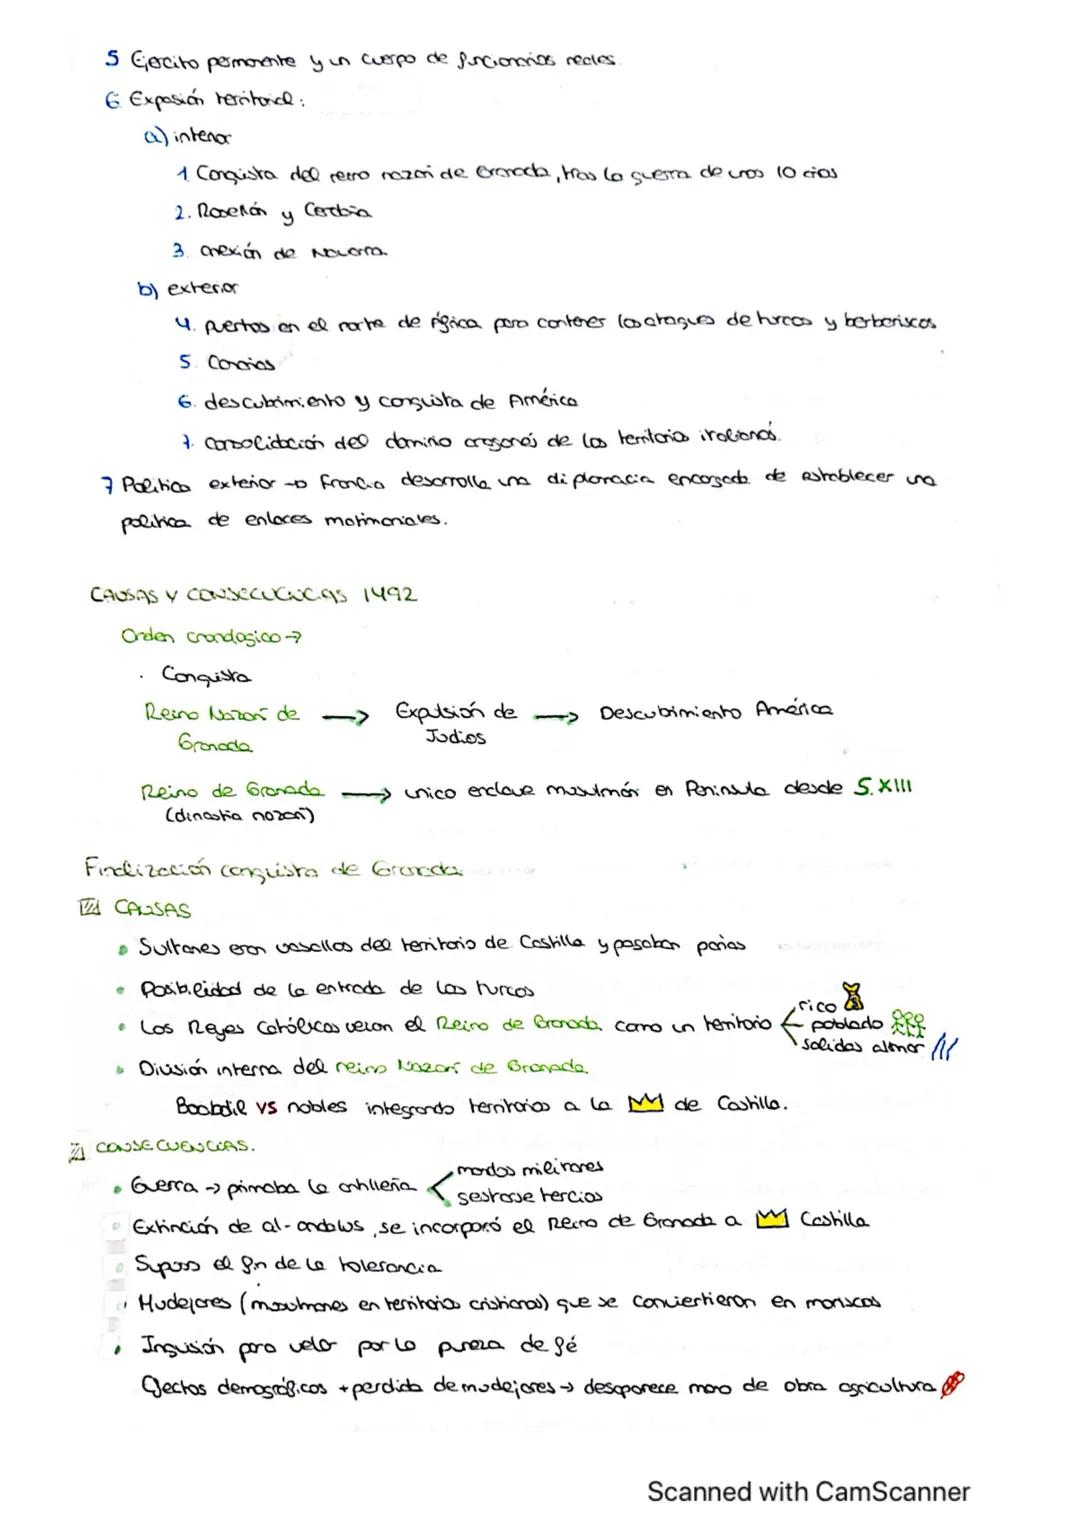 5 Ejercito permanente y un cuerpo de funcionarios reales.
6 Expasión territorial:
a) interior
1 Conquista del reino nazarí de Granada, tras la guerra de unos 10 años
2. Rosellón y Cerdaña
3. anexión de Navarra.
b) exterior
4. puertos en el norte de África para contener los ataques de turcos y berberiscos
5. Canarias
6. descubrimiento y conquista de América
7. consolidación del dominio aragonés de los territorios italianos.
7 Política exterior → Francia desarrolla una diplomacia encargada de establecer una
política de enlaces matrimoniales.
CAUSAS Y CONSECUENCIAS 1492
Orden cronologico →
· Conquista
Reino Nazarí de → Expulsión de → Descubrimiento América
Granada Judios
Reino de Granada → unico enclave musulmán en Peninsula desde S.XIII
(dinastia nazarí)
Finalización conquista de Granada
CAUSAS
• Sultanes eran vasallos del territorio de Castilla y pagaban parias
• Posibilidad de la entrada de los turcos
• Los Reyes Católicos veian el Reino de Granada como un territorio rico
poblado
salidas al mar
• División interna del reino Nazarí de Granada
Boabdil vs nobles integrando territorios a la de Castilla.
CONSECUENCIAS.
• Guerra → primaba la artillería mandos militares
gestarse tercios
• Extinción de al-andalus, se incorporó el Reino de Granada a Castilla
• Supuso el fin de la tolerancia
• Mudejares (musulmanes en territorios cristianos) que se convirtieron en moriscos
• Inqusión para velar por la pureza de fé
Efectos demográficos + perdida de mudejares → desaparece mano de obra agricultura
Scanned with CamScanner